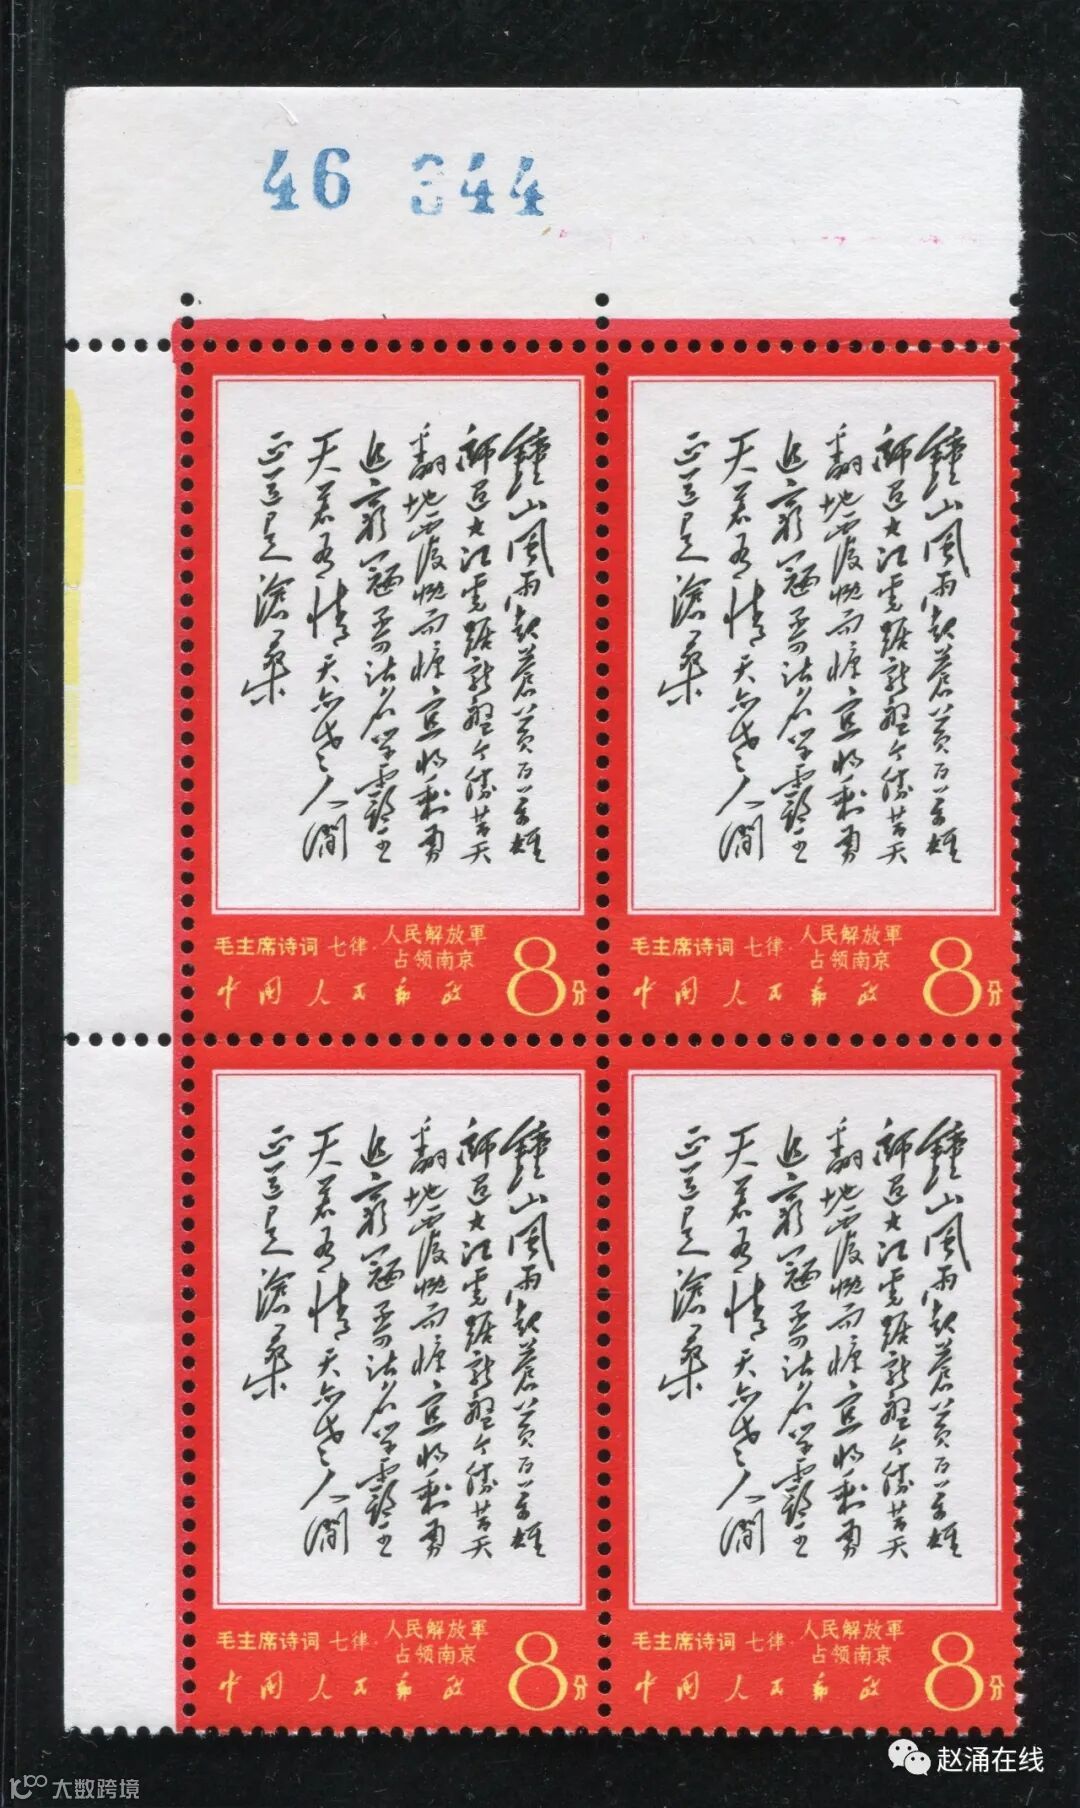 46 344
鐘山風雨起蒼黃百萬雄
師過大江虎踞龍盤今勝昔天
翻地覆慨而慷宜將剩勇
追窮寇不可沽名学霸王
天若有情天亦老人間
正道是滄桑
毛主席诗词 七律·人民解放軍
占领南京
中国人民邮政 8分
鐘山風雨起蒼黃百萬雄
師過大江虎踞龍盤今勝昔天
翻地覆慨而慷宜將剩勇
追窮寇不可沽名学霸王
天若有情天亦老人間
正道是滄桑
毛主席诗词 七律·人民解放軍
占领南京
中国人民邮政 8分
鐘山風雨起蒼黃百萬雄
師過大江虎踞龍盤今勝昔天
翻地覆慨而慷宜將剩勇
追窮寇不可沽名学霸王
天若有情天亦老人間
正道是滄桑
毛主席诗词 七律·人民解放軍
占领南京
中国人民邮政 8分
鐘山風雨起蒼黃百萬雄
師過大江虎踞龍盤今勝昔天
翻地覆慨而慷宜將剩勇
追窮寇不可沽名学霸王
天若有情天亦老人間
正道是滄桑
毛主席诗词 七律·人民解放軍
占领南京
中国人民邮政 8分
赵涌在线
大数跨境